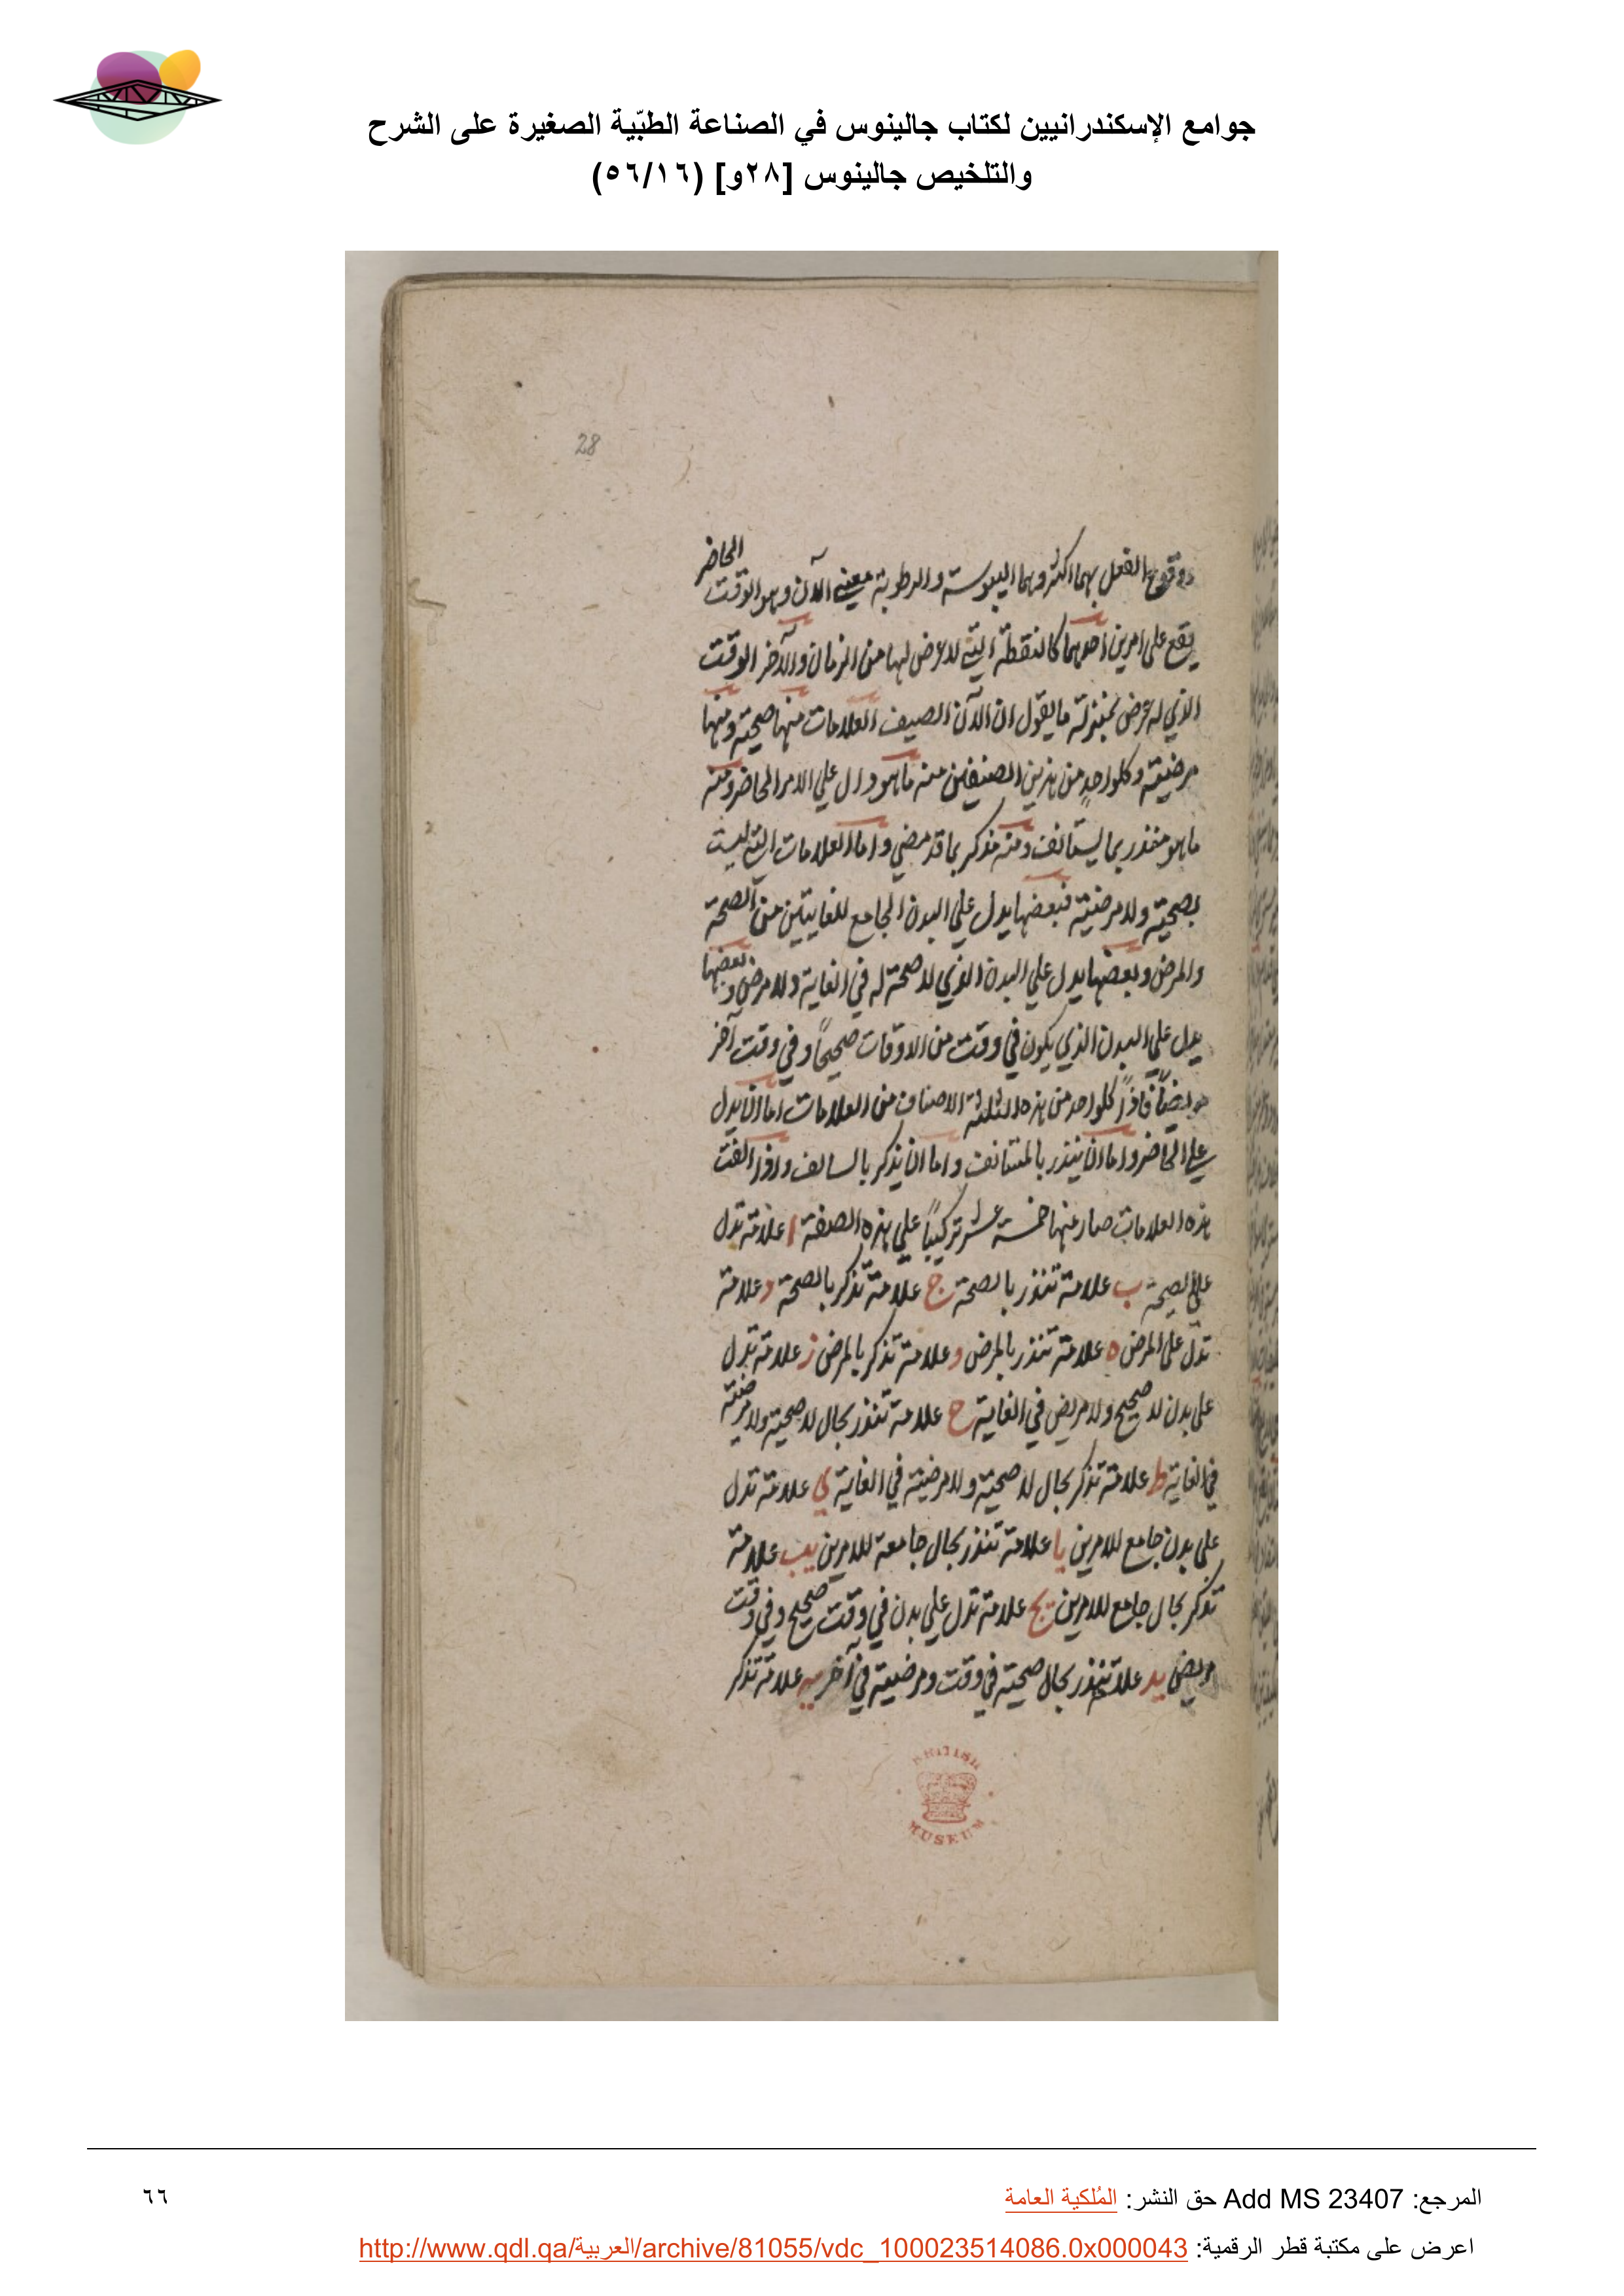 جوامع الإسكندرانيين لكتاب جالينوس في الصناعة الطبّية الصغيرة على الشرح
والتلخيص جالينوس [٢٨و] (٥٦/١٦)
28
ووقوع الفعل بهما اكثر وهما اليبوسة والرطوبة معنى الآن وهو الوقت الحاضر
يقع على امرين احدهما كالنقطة التي لا عرض لها من الزمان والآخر الوقت
الذي له عرض بمنزلة ما يقول ان الآن الصيف العلامات منها صحية ومنها
مرضية وكلواحدٍ من هذين الصنفين منه ما هو دال على الامر الحاضر ومنه
ما هو منذر بما يستانف ومنه مذكر بما قد مضي واما العلامات التي ليست
بصحية ولا مرضية فبعضها يدل علي البدن الجامع للغايتين من الصحة
والمرض وبعضها يدل علي البدن الذي لا صحة له في الغاية ولا مرض وبعضها
يدل علي البدن الذي يكون في وقت من الاوقات صحيحاً وفي وقت آخر
مريضاً فاذاً كلواحد من هذه الثلثة الاصناف من العلامات اما ان يدل
علي الحاضر واما ان ينذر بالمستانف واما ان يذكر بالسالف واذا الفت
هذه العلامات صار عنها خمسة عشر تركيباً علي هذه الصفة ا علامة تدل
علي الصحة ب علامة تنذر بالصحة ج علامة تذكر بالصحة د علامة
تدل على المرض ه علامة تنذر بالمرض و علامة تذكر بالمرض ز علامة تدل
على بدن لا صحيح ولا مريض في الغاية ح علامة تنذر بحال لا صحية ولا مرضية
في الغاية ط علامة تذكر بحال لا صحية ولا مرضية في الغاية ي علامة تدل
على بدن جامع للامرين يا علامة تنذر بحال جامعة للامرين يب علامة
تذكر بحال جامع للامرين يج علامة تدل علي بدن في وقت صحيح وفي وقت
مريض يد علامة تنذر بحال صحية في وقت ومرضية في آخر يه علامة تذكر
BRITISH
MUSEUM
المرجع: Add MS 23407 حق النشر: المُلكية العامة
٦٦
اعرض على مكتبة قطر الرقمية: http://www.qdl.qa/العربية/archive/81055/vdc_100023514086.0x000043